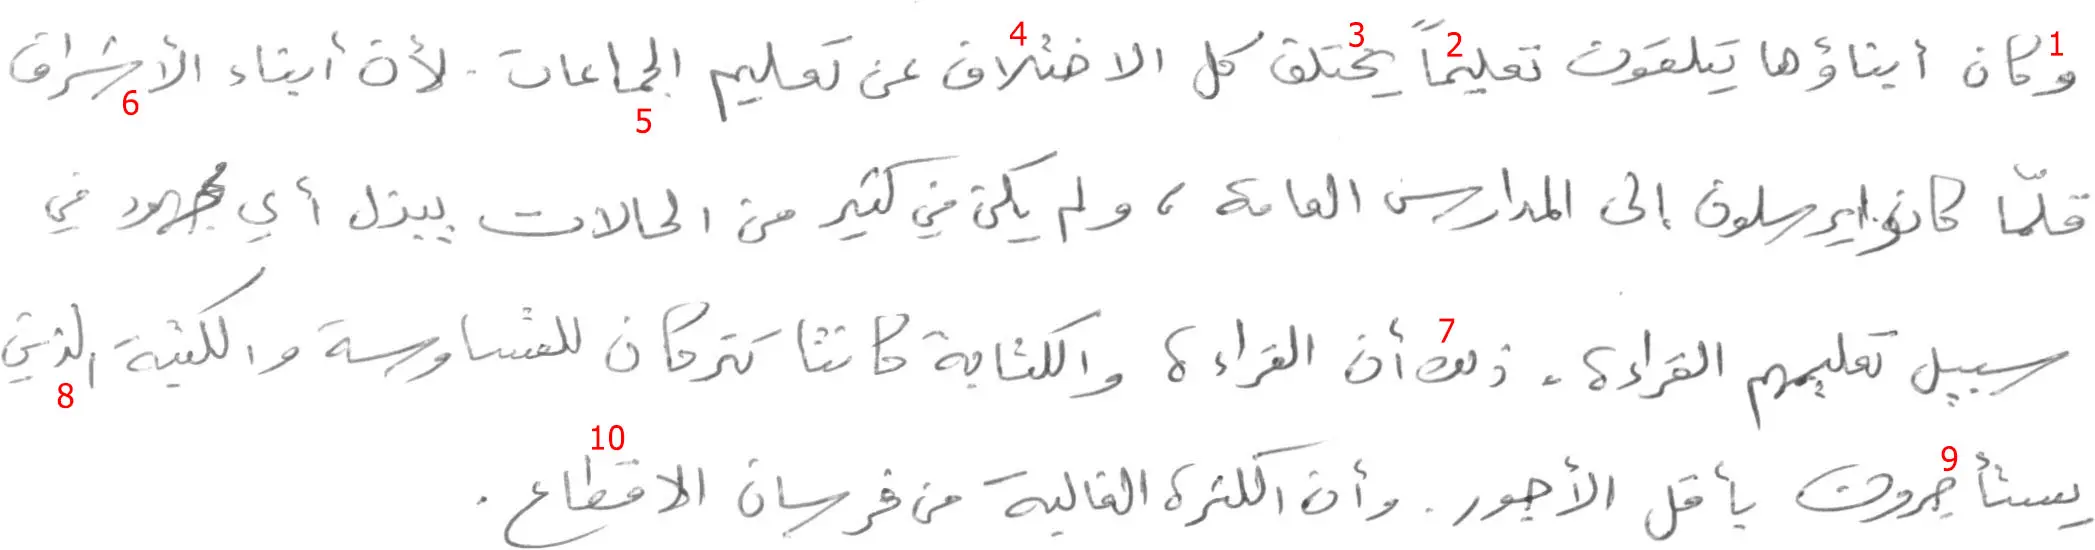 وكان أبناؤها يتلقون تعليماً يختلف كل الاختلاف عن تعليم الجماعات . لأن أبناء الأشراف
قلمّا كانوا يرسلون إلى المدارس العامة ، ولم يكن في كثير من الحالات يبذل أي مجهود في
سبيل تعليمهم القراءة . ذلك أن القراءة والكتابة كانتا تتركان للقساوسة والكتبة الذين
يستأجرون بأقل الأجور . وأن الكثرة الغالبة من فرسان الاقطاع .
1
2
3
4
5
6
7
8
9
10